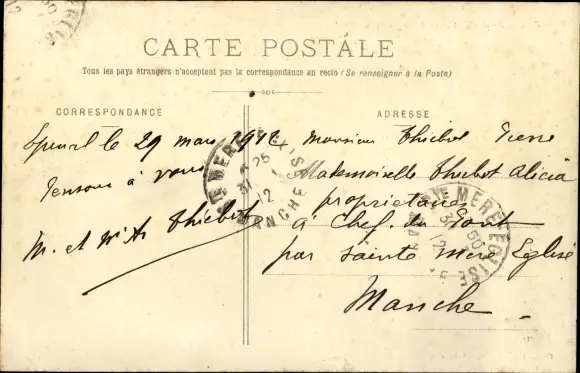 CARTE POSTALE
Tous les pays étrangers n'acceptent pas la correspondance au recto (Se renseigner à la Poste)
CORRESPONDANCE
le 29 mars 1912
Pensons à vous
M. et
Thiebot
ADRESSE
Monsieur Thiebot Pierre
Mademoiselle Thiebot Alicia
proprietaires
à Chef du Pont
par Sainte Mère Eglise
Manche
STE MERE EGLISE
MANCHE